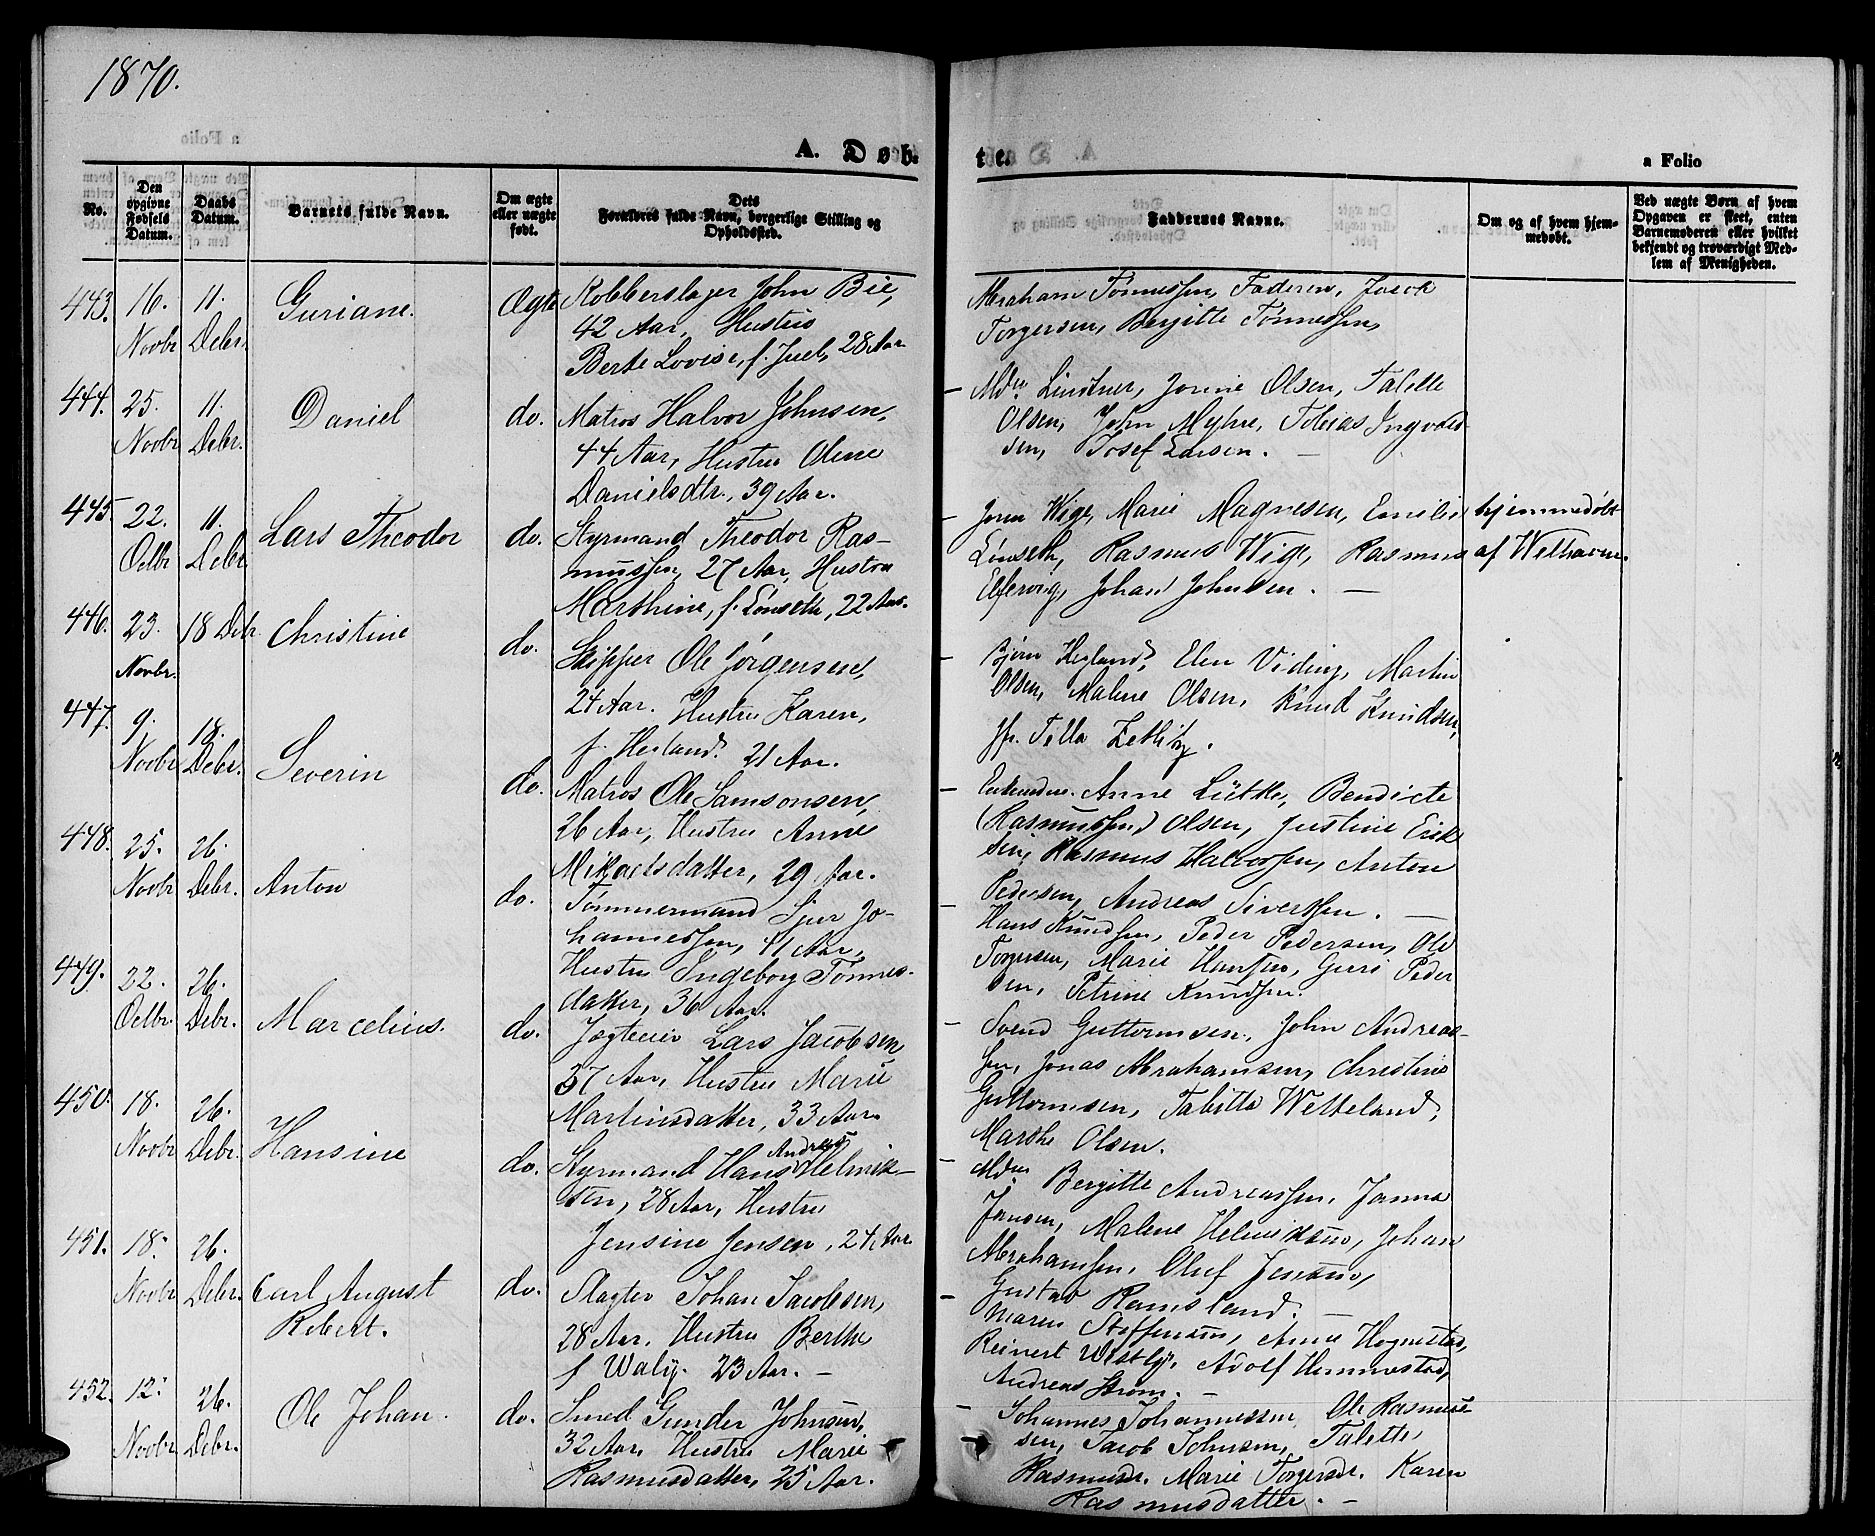 1870.
A. Døb-
te.
a Folio
No.
Den opgivne Fødsels Datum.
Daabs Datum.
Barnets fulde Navn.
Om ægte eller uægte født.
Dets Forældres fulde Navn, borgerlige Stilling og Opholdssted.
Faddernes Navne.
Om og af hvem hjemmedøbt.
Ved uægte Børn af hvem Opgaven er skeet, enten Barnemoderen eller hvilket bekjendt og troværdigt Medlem af Menigheden.
443. 16. Novbr 11. Debr. Guriane. Ægte
Kobberslager John Bie,
42 Aar, Hustru
Berte Lovise, f. Juel, 28 Aar
Abraham Tønnessen, Faderen, Jacob
Torgersen, Bergitte Tønnessen,
444. 25. Novbr 11. Debr. Daniel do.
Matros Halvor Johnsen,
44 Aar, Hustru Olene
Danielsdtr., 39 Aar.
Mdm. Lindtner, Jonne Olsen, Talette
Olsen, John Myhre, Tobias Ingvald-
sen, Josef Larsen. —
445. 22. Octbr 11. Debr Lars Theodor do.
Styrmand Theodor Ras-
mussen, 27 Aar, Hustru
Marthine, f. Lønseth, 22 Aar.
Wige, Marie Magnesen, Emilie
Lønseth, Rasmus Wige, Rasmus
Johan Johnsen. —
hjemmedøbt
af Welhaven.
446. 23. Novbr. 18 Debr Christine do.
Skipper Ole Jørgensen,
24 Aar. Hustru Karen,
f. Hegland. 21 Aar.
Bjørn Hegland, Elen Viding, Martin
Olsen, Malene Olsen, Knud Knudsen,
Jfr. Tilla Zetlitz.
447. 9. Novbr 18. Debr. Severin do.
Matros Ole Samsonsen,
26 Aar, Hustru Anne
Mikaelsdatter, 29 Aar.
Anne Lütke, Bendicte
(Rasmussen) Olsen, Justine Erik
sen, Rasmus Halvorsen, Anton
Pedersen, Andreas Sivertsen. —
448. 25. Novbr 26. Debr. Anton do.
Tømmermand Sjur Jo-
hannessen, 41 Aar,
Hustru Ingeborg Tønnes-
datter, 36 Aar.
Hans Knudsen, Peder Pedersen, Ole
Torgersen, Marie Hansen, Guri Peder
sen, Petrine Knudsen.
449. 22. Octbr. 26. Debr. Marcelius. do.
Jægteeier Lars Jacobsen
37 Aar, Hustru Marie
Martinsdatter, 33 Aar.
Svend Guttormsen, John Andreas-
sen, Jonas Abrahamsen, Christine
Guttormsen, Tabitta Wetteland,
Marthe Olsen.
450. 18. Novbr 26. Debr. Hansine do.
Styrmand Hans Andreas Helmik-
sen, 28 Aar, Hustru
Jensine Jensen, 24 Aar
Mdm. Bergitte Andreassen, Janna
Jansen, Malene Helmiksen, Johan
Abrahamsen, Oluf Jensen,
Gustav Ramsland. —
451. 18. Novbr 26. Debr. Carl August
Robert. do.
Slagter Johan Jacobsen,
28 Aar. Hustru Berthe
f. Waly. 23 Aar. —
Maren Steffensen, Anne Hognestad,
Reinert Westly, Adolf Himmestad,
Andreas Strøm. —
452. 12. Novbr 26. Debr. Ole Johan. do.
Smed Gunder Johnsen,
32 Aar, Hustru Marie
Rasmusdatter, 25 Aar.
Johannes Johannessen, Ole Rasmus-
sen, Jacob Johnsen, Talette
Rasmusdr. Marie Torgersdr. Karen
Rasmusdatter. —